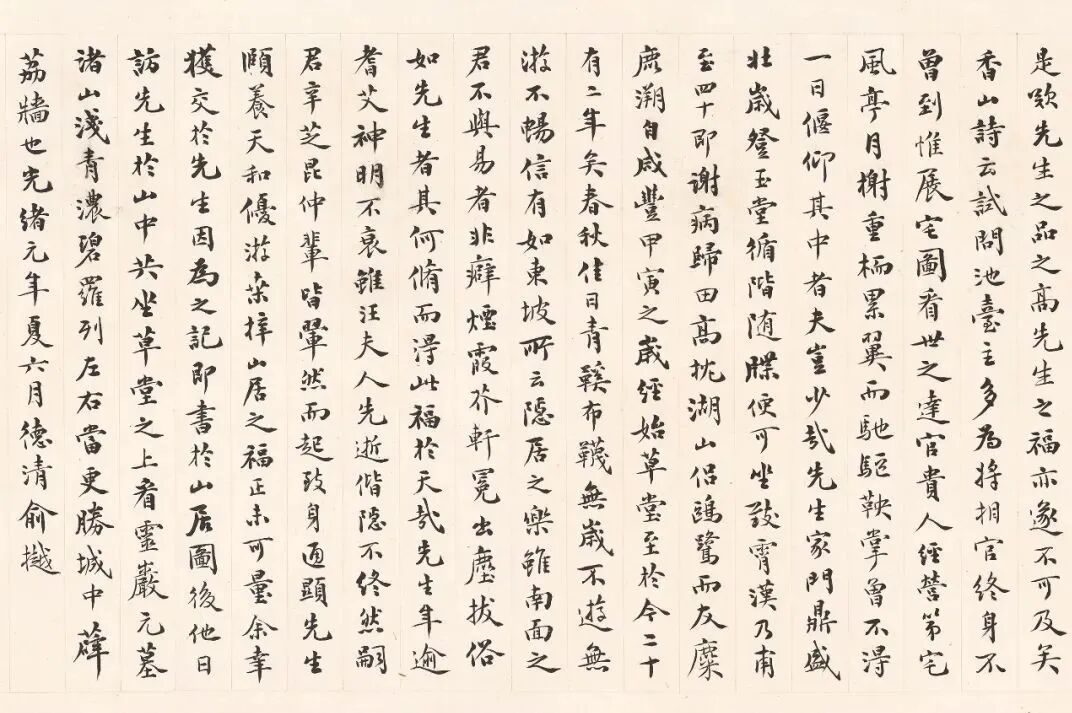 是歟先生之品之高先生之福亦遂不可及矣
香山詩云試問池臺主多為將相官終身不
曾到惟展宅圖看世之達官貴人經營第宅
風亭月榭重栭累翼而馳驅鞅掌曾不得
一日偃仰其中者夫豈少哉先生家門鼎盛
壯歲登玉堂循階随牒便可坐致霄漢乃甫
至四十即謝病歸田高枕湖山侣鷗鷺而友麋
鹿溯自咸豐甲寅之歲經始草堂至於今二十
有二年矣春秋佳日青鞵布韈無歲不遊無
游不暢信有如東坡所云隱居之樂雖南面之
君不與易者非癖煙霞芥軒冕出塵拔俗
如先生者其何脩而得此福於天哉先生年逾
耆艾神明不衰雖汪夫人先逝偕隱不終然嗣
君辛芝昆仲輩皆翬然而起致身通顯先生
頤養天和優游桑梓山居之福正未可量余幸
獲交於先生因為之記即書於山居圖後他日
訪先生於山中共坐草堂之上看靈巖元墓
諸山淺青濃碧羅列左右當更勝城中薜
荔牆也光緒元年夏六月德清俞樾